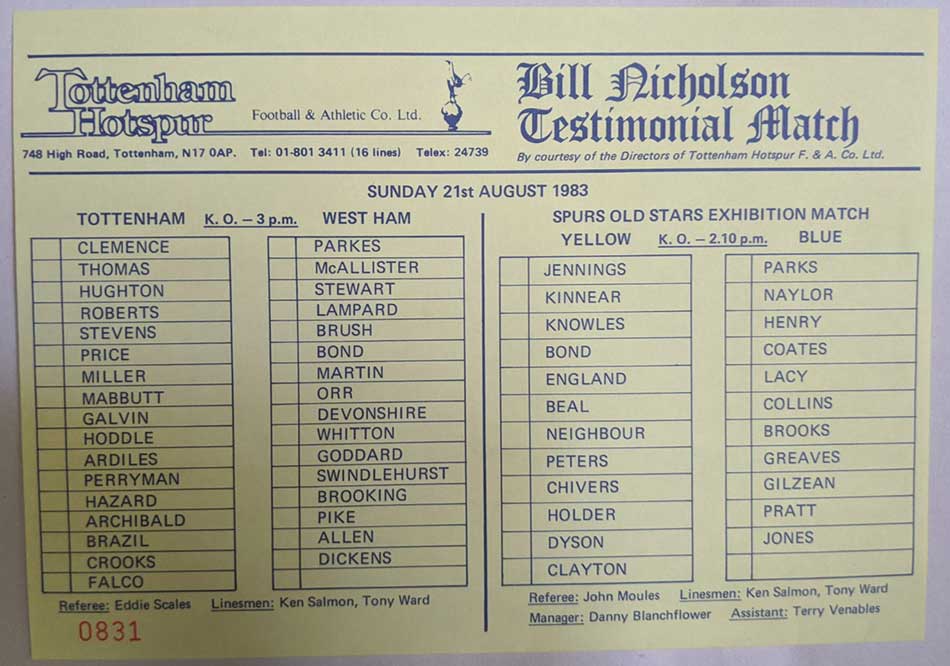 Tottenham
Hotspur
Football & Athletic Co. Ltd.
748 High Road, Tottenham, N17 0AP. Tel: 01-801 3411 (16 lines) Telex: 24739
Bill Nicholson
Testimonial Match
By courtesy of the Directors of Tottenham Hotspur F. & A. Co. Ltd.
SUNDAY 21st AUGUST 1983
TOTTENHAM K. O. – 3 p.m. WEST HAM
CLEMENCE
THOMAS
HUGHTON
ROBERTS
STEVENS
PRICE
MILLER
MABBUTT
GALVIN
HODDLE
ARDILES
PERRYMAN
HAZARD
ARCHIBALD
BRAZIL
CROOKS
FALCO
PARKES
McALLISTER
STEWART
LAMPARD
BRUSH
BOND
MARTIN
ORR
DEVONSHIRE
WHITTON
GODDARD
SWINDLEHURST
BROOKING
PIKE
ALLEN
DICKENS
Referee: Eddie Scales Linesmen: Ken Salmon, Tony Ward
0831
SPURS OLD STARS EXHIBITION MATCH
YELLOW K. O. – 2.10 p.m. BLUE
JENNINGS
KINNEAR
KNOWLES
BOND
ENGLAND
BEAL
NEIGHBOUR
PETERS
CHIVERS
HOLDER
DYSON
CLAYTON
PARKS
NAYLOR
HENRY
COATES
LACY
COLLINS
BROOKS
GREAVES
GILZEAN
PRATT
JONES
Referee: John Moules Linesmen: Ken Salmon, Tony Ward
Manager: Danny Blanchflower Assistant: Terry Venables